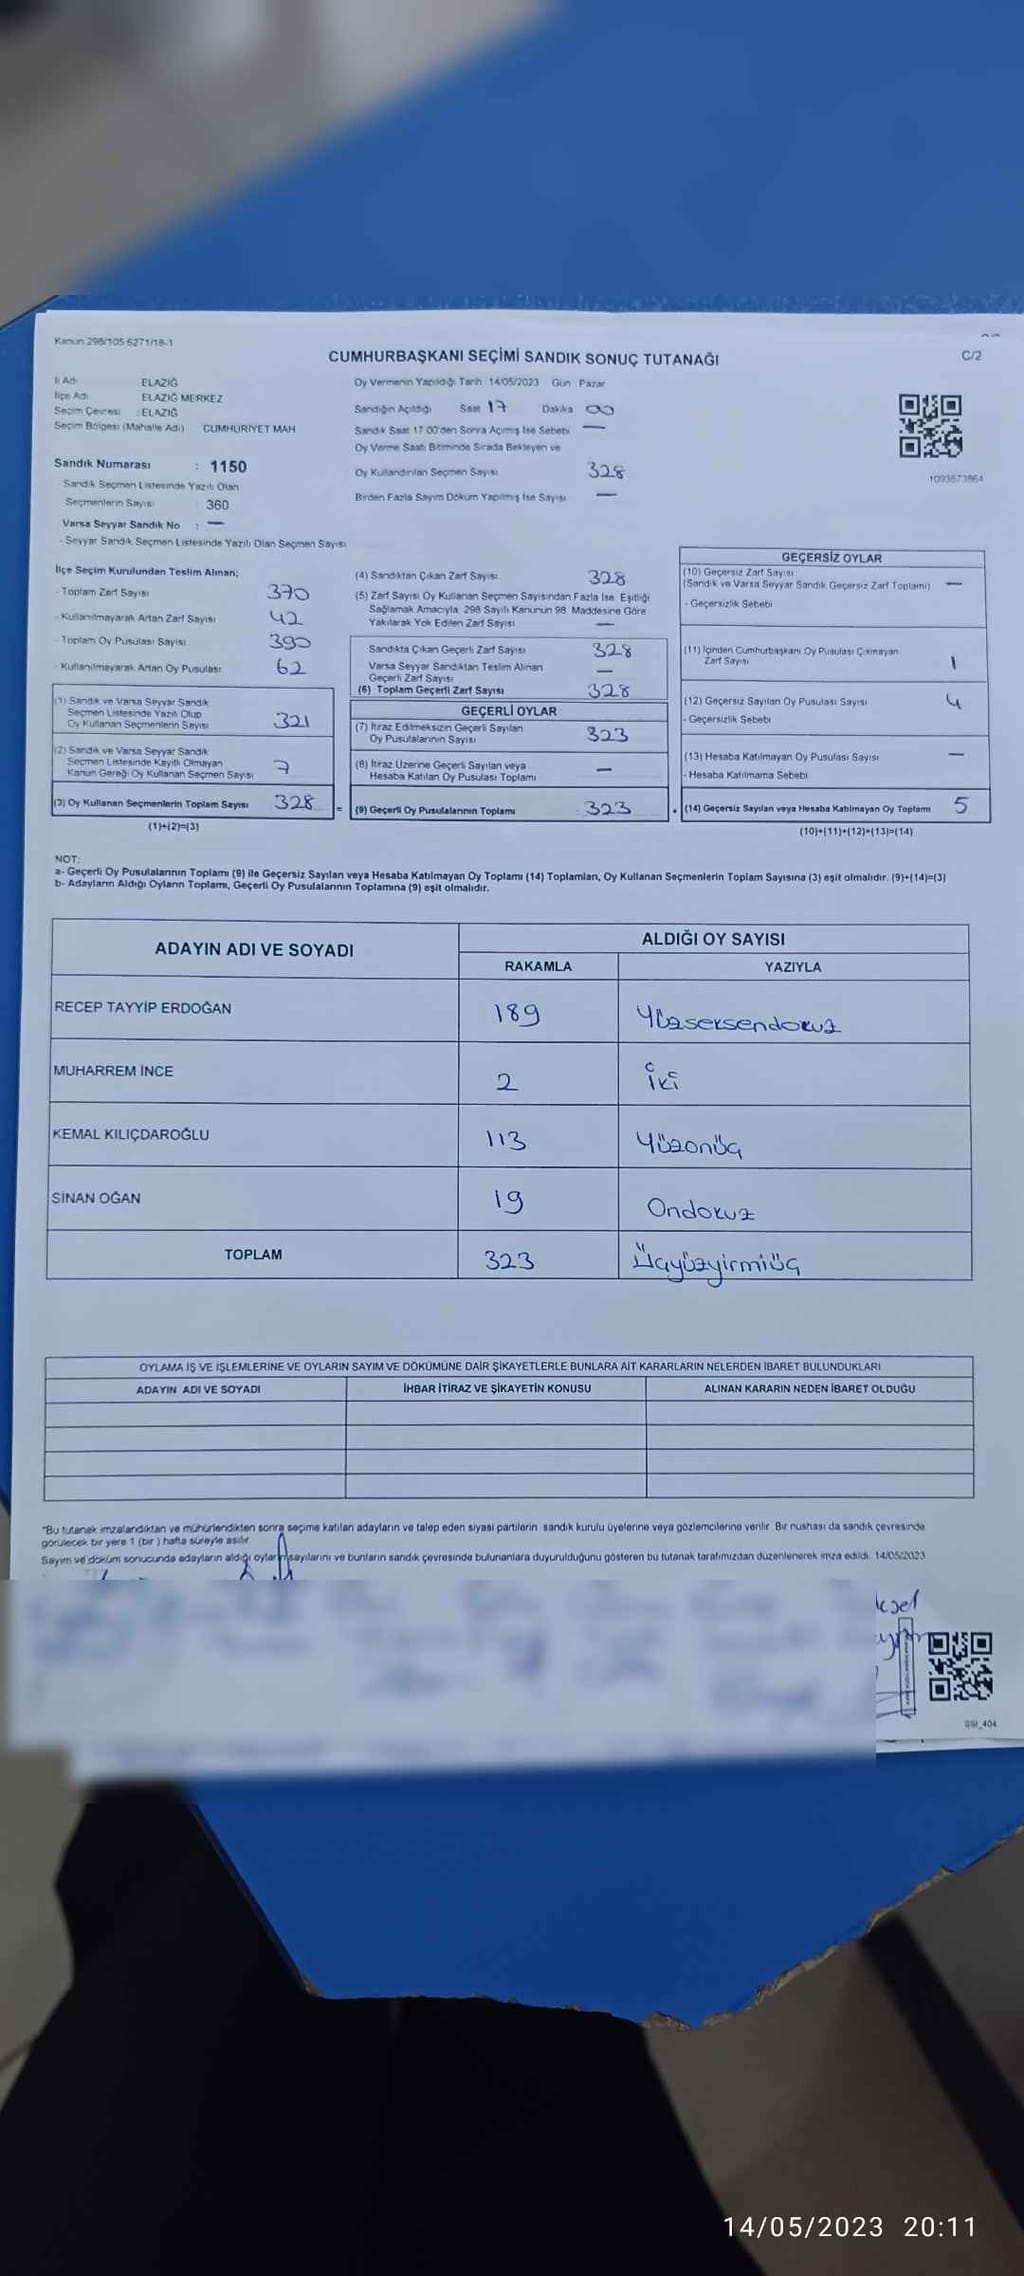 Kanun 298/105 6271/18-1
CUMHURBAŞKANI SEÇİMİ SANDIK SONUÇ TUTANAĞI
C/2
İl Adı : ELAZIĞ
İlçe Adı : ELAZIĞ MERKEZ
Seçim Çevresi : ELAZIĞ
Seçim Bölgesi (Mahalle Adı) CUMHURİYET MAH
Oy Vermenin Yapıldığı Tarih 14/05/2023 Gün Pazar
Sandığın Açıldığı Saat 17 Dakika 00
Sandık Saat 17.00'den Sonra Açılmış İse Sebebi —
Oy Verme Saati Bitiminde Sırada Bekleyen ve
Oy Kullandırılan Seçmen Sayısı 328
Birden Fazla Sayım Döküm Yapılmış İse Sayısı —
1093573864
Sandık Numarası : 1150
Sandık Seçmen Listesinde Yazılı Olan
Seçmenlerin Sayısı 360
Varsa Seyyar Sandık No : —
- Seyyar Sandık Seçmen Listesinde Yazılı Olan Seçmen Sayısı
İlçe Seçim Kurulundan Teslim Alınan;
- Toplam Zarf Sayısı 370
- Kullanılmayarak Artan Zarf Sayısı 42
- Toplam Oy Pusulası Sayısı 390
- Kullanılmayarak Artan Oy Pusulası 62
(1) Sandık ve Varsa Seyyar Sandık
Seçmen Listesinde Yazılı Olup
Oy Kullanan Seçmenlerin Sayısı 321
(2) Sandık ve Varsa Seyyar Sandık
Seçmen Listesinde Kayıtlı Olmayan
Kanun Gereği Oy Kullanan Seçmen Sayısı 7
(3) Oy Kullanan Seçmenlerin Toplam Sayısı 328 =
(1)+(2)=(3)
(4) Sandıktan Çıkan Zarf Sayısı 328
(5) Zarf Sayısı Oy Kullanan Seçmen Sayısından Fazla İse, Eşitliği
Sağlamak Amacıyla 298 Sayılı Kanunun 98. Maddesine Göre
Yakılarak Yok Edilen Zarf Sayısı —
Sandıkta Çıkan Geçerli Zarf Sayısı 328
Varsa Seyyar Sandıktan Teslim Alınan
Geçerli Zarf Sayısı —
(6) Toplam Geçerli Zarf Sayısı 328
GEÇERLİ OYLAR
(7) İtiraz Edilmeksizin Geçerli Sayılan
Oy Pusulalarının Sayısı 323
(8) İtiraz Üzerine Geçerli Sayılan veya
Hesaba Katılan Oy Pusulası Toplamı —
(9) Geçerli Oy Pusulalarının Toplamı 323 +
GEÇERSİZ OYLAR
(10) Geçersiz Zarf Sayısı
(Sandık ve Varsa Seyyar Sandık Geçersiz Zarf Toplamı) —
- Geçersizlik Sebebi
(11) İçinden Cumhurbaşkanı Oy Pusulası Çıkmayan
Zarf Sayısı 1
(12) Geçersiz Sayılan Oy Pusulası Sayısı 4
- Geçersizlik Sebebi
(13) Hesaba Katılmayan Oy Pusulası Sayısı —
- Hesaba Katılmama Sebebi
(14) Geçersiz Sayılan veya Hesaba Katılmayan Oy Toplamı 5
(10)+(11)+(12)+(13)=(14)
NOT:
a- Geçerli Oy Pusulalarının Toplamı (9) ile Geçersiz Sayılan veya Hesaba Katılmayan Oy Toplamı (14) Toplamları, Oy Kullanan Seçmenlerin Toplam Sayısına (3) eşit olmalıdır. (9)+(14)=(3)
b- Adayların Aldığı Oyların Toplamı, Geçerli Oy Pusulalarının Toplamına (9) eşit olmalıdır.
ADAYIN ADI VE SOYADI
ALDIĞI OY SAYISI
RAKAMLA YAZIYLA
RECEP TAYYİP ERDOĞAN 189 Yüzseksendokuz
MUHARREM İNCE 2 İki
KEMAL KILIÇDAROĞLU 113 Yüzonüç
SİNAN OĞAN 19 Ondokuz
TOPLAM 323 Üçyüzyirmiüç
OYLAMA İŞ VE İŞLEMLERİNE VE OYLARIN SAYIM VE DÖKÜMÜNE DAİR ŞİKAYETLERLE BUNLARA AİT KARARLARIN NELERDEN İBARET BULUNDUKLARI
ADAYIN ADI VE SOYADI İHBAR İTİRAZ VE ŞİKAYETİN KONUSU ALINAN KARARIN NEDEN İBARET OLDUĞU
"Bu tutanak imzalandıktan ve mühürlendikten sonra seçime katılan adayların ve talep eden siyasi partilerin sandık kurulu üyelerine veya gözlemcilerine verilir. Bir nüshası da sandık çevresinde
görülecek bir yere 1 (bir) hafta süreyle asılır.
Sayım ve döküm sonucunda adayların aldığı oyların sayılarını ve bunların sandık çevresinde bulunanlara duyurulduğunu gösteren bu tutanak tarafımızdan düzenlenerek imza edildi. 14/05/2023
14/05/2023 20:11